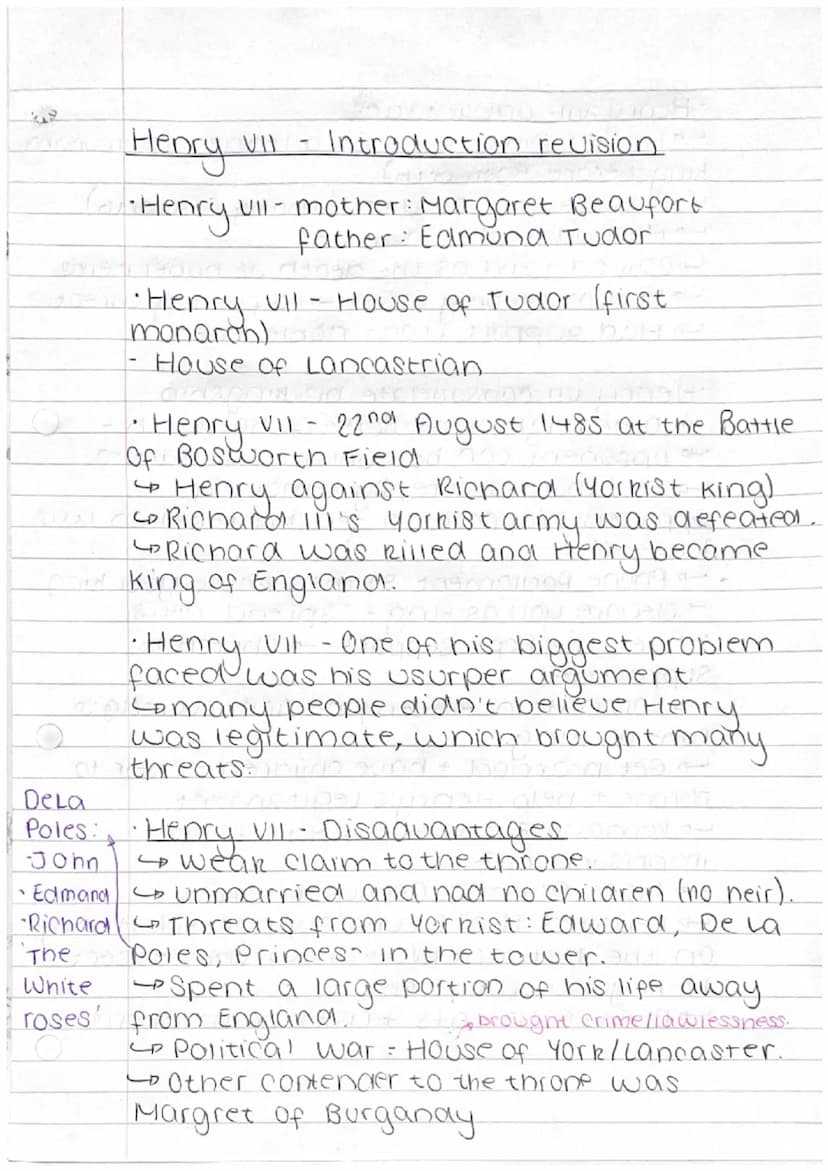 Henry VII - Introduction revision
·Henry VII - mother: Margaret Beaufort
father: Edmund Tudor
·Henry VII - House of Tudor (first
monarch)
- House of Lancastrian
·Henry VII - 22nd August 1485 at the Battle
Of Bosworth Field
↳ Henry against Richard (Yorkist king)
↳ Richard III's Yorkist army was defeated.
↳ Richard was killed and Henry became
king of England.
·Henry VII - One of his biggest problem
faced was his usurper argument
↳ many people didn't believe Henry
was legitimate, which brought many
threats.
De La
Poles:
-John
·Edmand
·Richard
'The
White
roses'
·Henry VII - Disadvantages
↳ Weak claim to the throne.
↳ unmarried and had no children (no heir).
↳ Threats from Yorkist: Edward, De La
Poles, Princes in the tower.
↳ Spent a large portion of his life away
from England.
brought crime/lawlessness.
↳ Political war = House of York/Lancaster.
↳ Other contender to the throne was
Margret of Burgandy